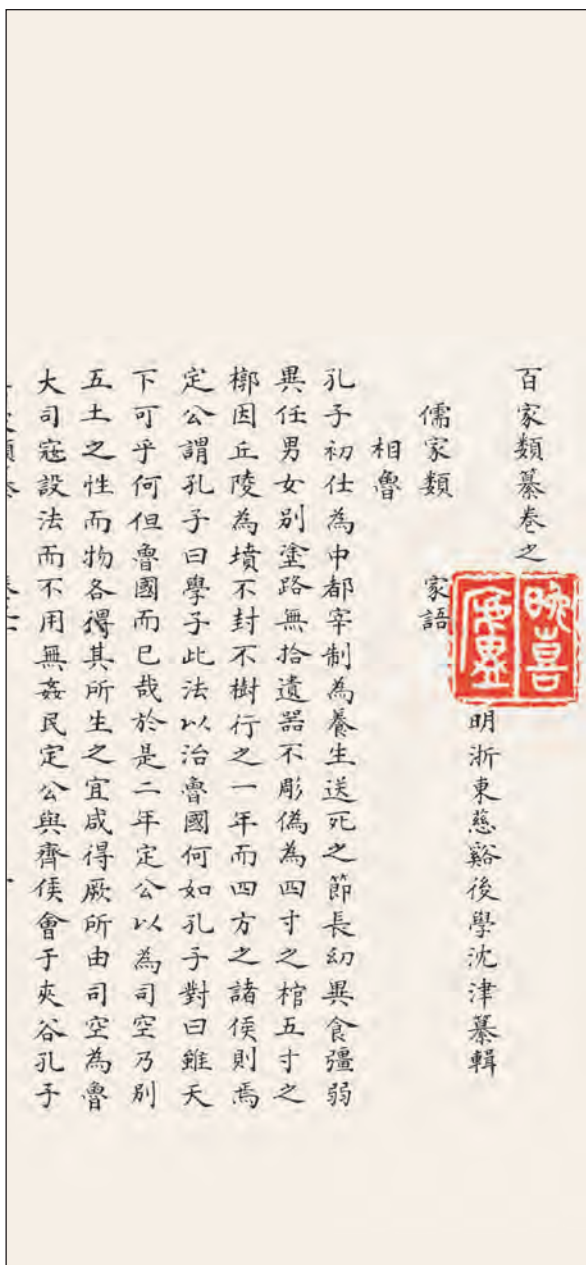 百家類纂卷之
明浙東慈谿後學沈津纂輯
儒家類 家語
相魯
孔子初仕為中都宰制為養生送死之節長幼異食彊弱
異任男女別塗路無拾遺器不彫偽為四寸之棺五寸之
槨因丘陵為墳不封不樹行之一年而四方之諸侯則焉
定公謂孔子曰學子此法以治魯國何如孔子對曰雖天
下可乎何但魯國而已哉於是二年定公以為司空乃別
五土之性而物各得其所生之宜咸得厥所由司空為魯
大司寇設法而不用無姦民定公與齊侯會于夾谷孔子
晚喜